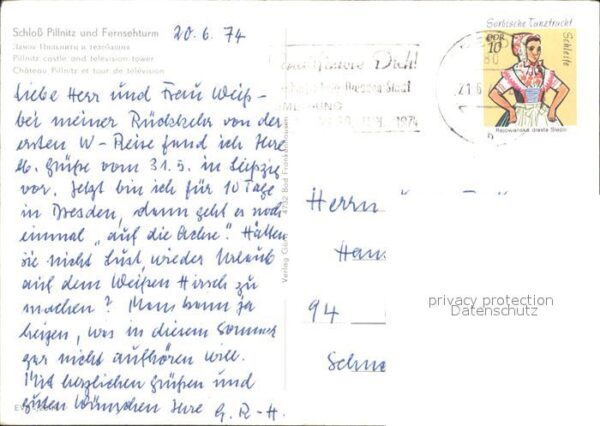 Schloß Pillnitz und Fernsehturm
Замок Пильниц и телебашня
Pillnitz castle and television tower
Château Pillnitz et tour de télévision
20.6.74
Liebe Herr und Frau Weiß –
bei meiner Rückkehr von der
ersten W-Reise fand ich Ihre
lb. Grüße vom 31.5. in Leipzig
vor. Jetzt bin ich für 10 Tage
in Dresden, dann geht es noch
einmal „auf die Achse". Hätten
Sie nicht Lust, wieder Urlaub
auf dem Weißen Hirsch zu
machen? Man kann ja
heizen, was in diesem Sommer
gar nicht aufhören will.
Mit herzlichen Grüßen und
guten Wünschen Ihre G. R-H.
Dich!
1974
21.6
Sorbische Tanztracht
DDR
10
Schleife
Rejowanska drasta Slepo
4732 Bad Frankenhausen
Verlag
Herrn
Han
94
Schne
privacy protection
Datenschutz